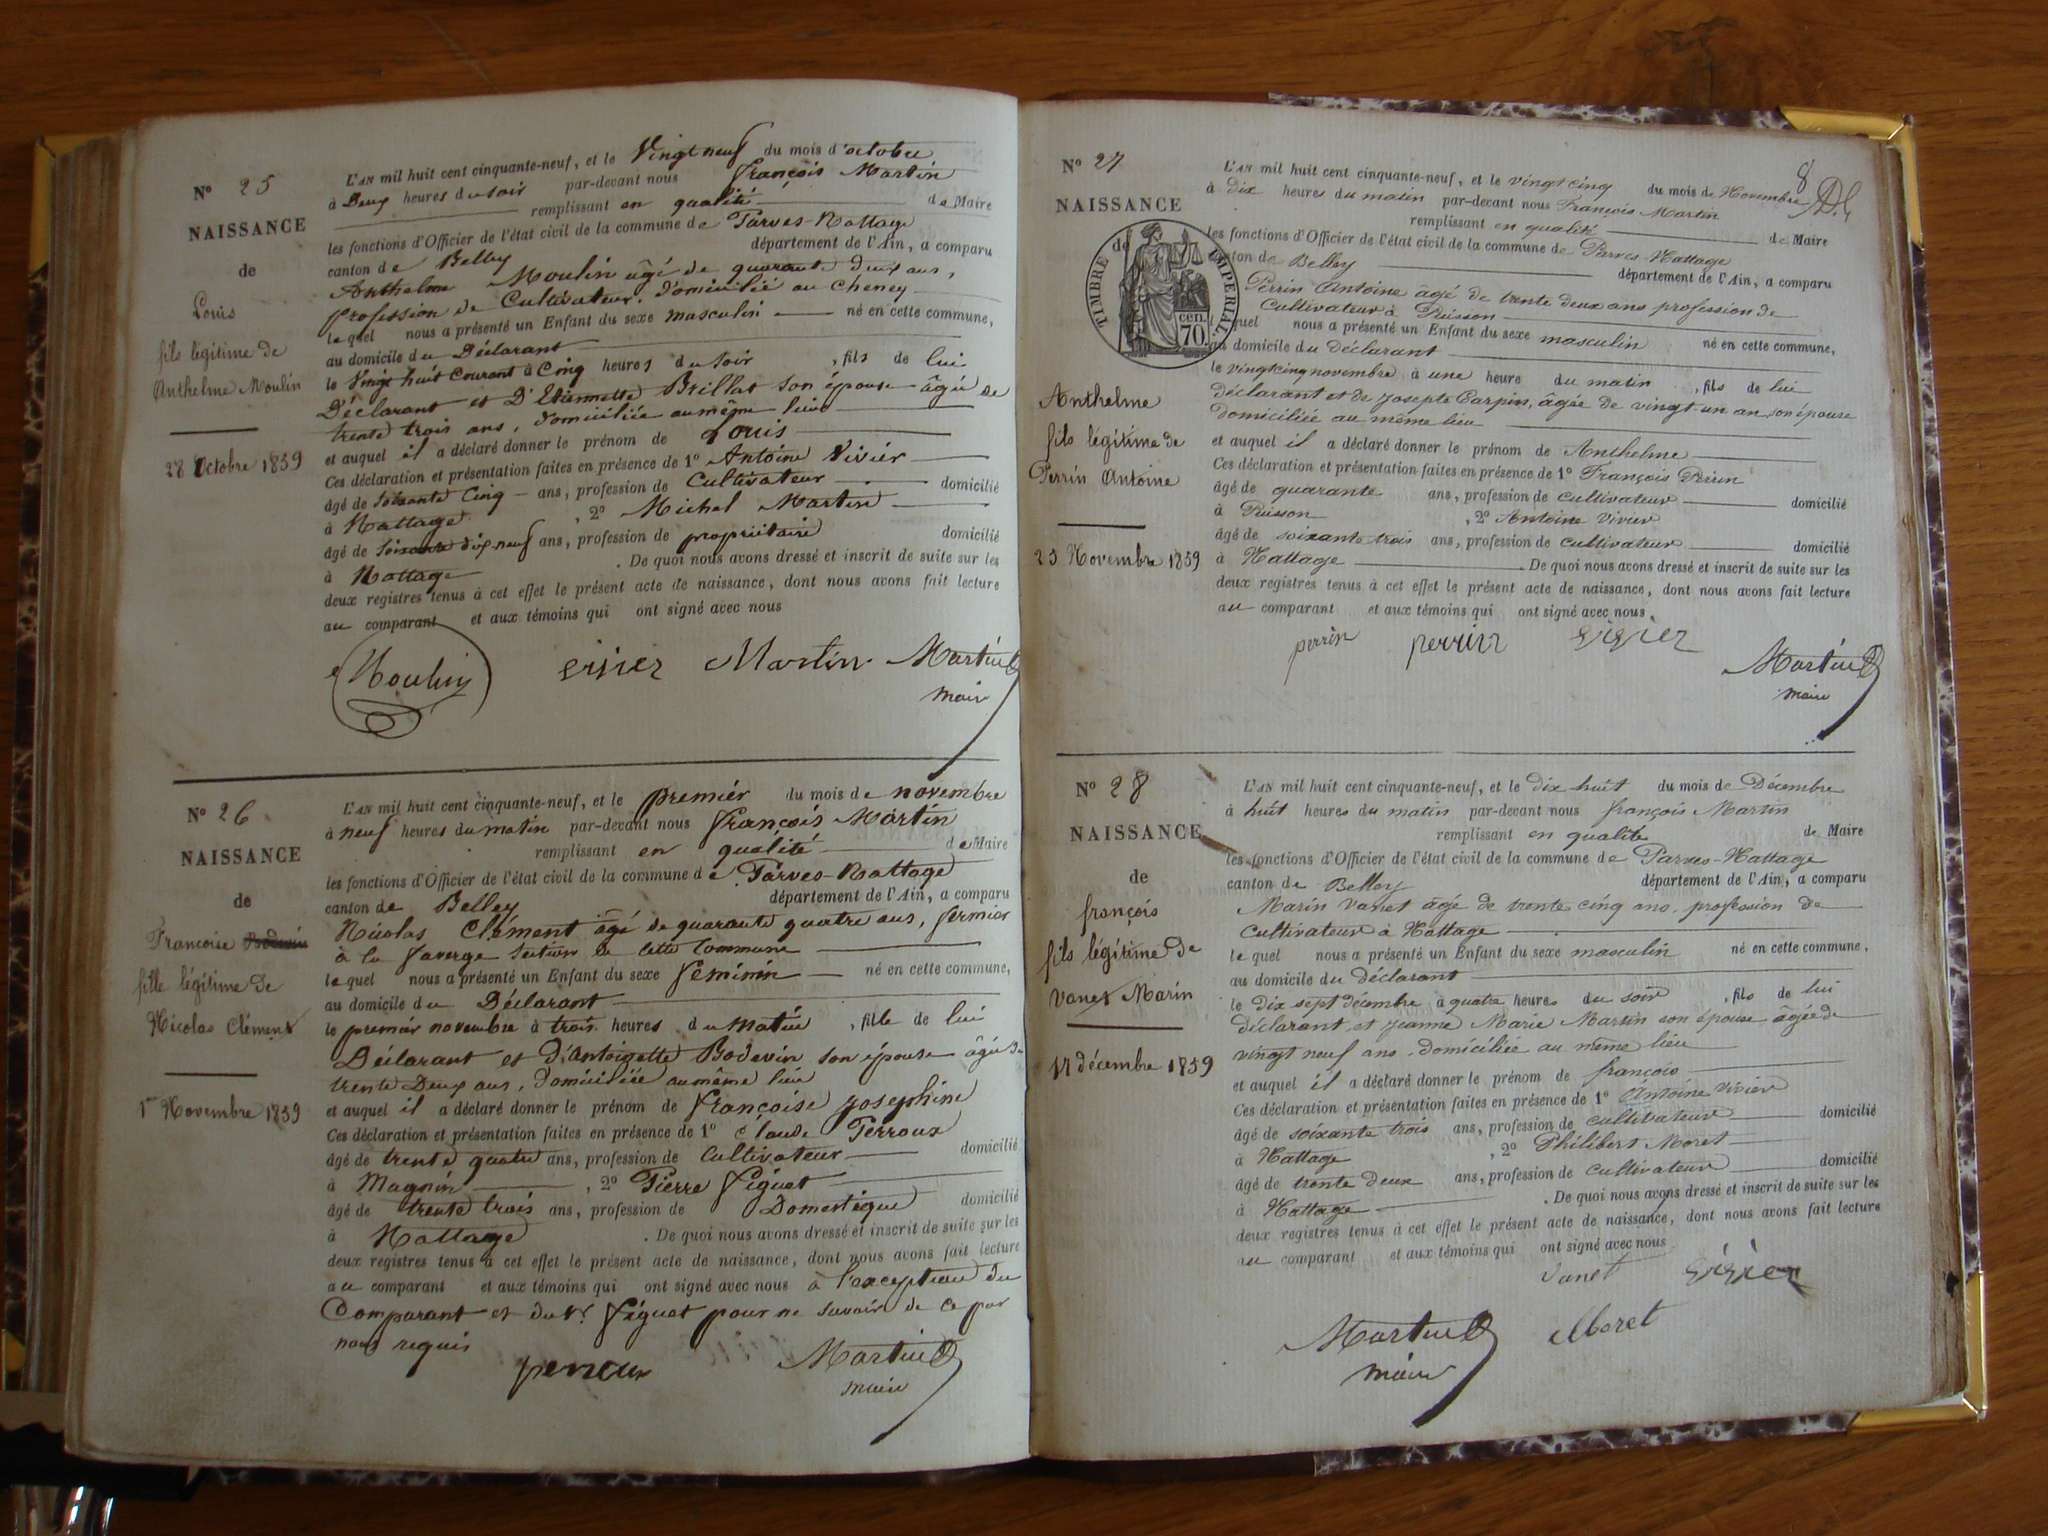 N° 25
NAISSANCE
de
Louis
fils légitime de
Anthelme Moulin
28 Octobre 1859
L'AN mil huit cent cinquante-neuf, et le Vingt neuf du mois d'octobre
à Deux heures du soir par-devant nous François Martin
remplissant en qualité de Maire
les fonctions d'Officier de l'état civil de la commune de Parves-Nattage
canton de Belley département de l'Ain, a comparu
Anthelme Moulin âgé de quarante deux ans,
profession de Cultivateur, domicilié au Cheney
lequel nous a présenté un Enfant du sexe masculin né en cette commune,
au domicile du Déclarant
le Vingt huit Courant à Cinq heures du soir, fils de lui
Déclarant et D'Etiennette Brillat son épouse âgée de
trente trois ans, domiciliée au même lieu
et auquel il a déclaré donner le prénom de Louis
Ces déclaration et présentation faites en présence de 1° Antoine Vivier
âgé de soixante Cinq ans, profession de Cultivateur domicilié
à Nattage, 2° Michel Martin
âgé de soixante dix neuf ans, profession de propriétaire domicilié
à Nattage. De quoi nous avons dressé et inscrit de suite sur les
deux registres tenus à cet effet le présent acte de naissance, dont nous avons fait lecture
au comparant et aux témoins qui ont signé avec nous
Moulin vivier Martin Martin
maire
N° 26
NAISSANCE
de
Francoise
fille légitime de
Nicolas Clément
1er Novembre 1859
L'AN mil huit cent cinquante-neuf, et le premier du mois de novembre
à neuf heures du matin par-devant nous François Martin
remplissant en qualité de Maire
les fonctions d'Officier de l'état civil de la commune de Parves-Nattage
canton de Belley département de l'Ain, a comparu
Nicolas Clément âgé de quarante quatre ans, fermier
à la Faverge section de cette Commune
lequel nous a présenté un Enfant du sexe féminin né en cette commune,
au domicile du Déclarant
le premier novembre à trois heures du matin, fille de lui
Déclarant et d'Antoinette Bodevin son épouse âgée de
trente Deux ans, domiciliée au même lieu
et auquel il a déclaré donner le prénom de Françoise Josephine
Ces déclaration et présentation faites en présence de 1° Claude Perroux
âgé de trente quatre ans, profession de Cultivateur domicilié
à Magnin, 2° Pierre Figuet
âgé de trente trois ans, profession de Domestique domicilié
à Nattage. De quoi nous avons dressé et inscrit de suite sur les
deux registres tenus à cet effet le présent acte de naissance, dont nous avons fait lecture
au comparant et aux témoins qui ont signé avec nous à l'exception du
Comparant et du Sr. Figuet pour ne savoir de ce par
nous requis
perroux Martin
maire
8
N° 27
NAISSANCE
de
TIMBRE IMPERIAL
cen. 70.
Anthelme
fils légitime de
Perrin Antoine
25 Novembre 1859
L'AN mil huit cent cinquante-neuf, et le vingt cinq du mois de Novembre
à dix heures du matin par-devant nous François Martin
remplissant en qualité de Maire
les fonctions d'Officier de l'état civil de la commune de Parves-Nattage
canton de Belley département de l'Ain, a comparu
Perrin Antoine âgé de trente deux ans profession de
Cultivateur à Puisson
lequel nous a présenté un Enfant du sexe masculin né en cette commune,
au domicile du Déclarant
le vingt cinq novembre à une heure du matin, fils de lui
déclarant et de Josepte Carpin, âgée de vingt un an son épouse
domiciliée au même lieu
et auquel il a déclaré donner le prénom de Anthelme
Ces déclaration et présentation faites en présence de 1° François Perrin
âgé de quarante ans, profession de cultivateur domicilié
à Puisson, 2° Antoine Vivier
âgé de soixante trois ans, profession de cultivateur domicilié
à Nattage. De quoi nous avons dressé et inscrit de suite sur les
deux registres tenus à cet effet le présent acte de naissance, dont nous avons fait lecture
au comparant et aux témoins qui ont signé avec nous.
perrin perrin vivier
Martin
maire
N° 28
NAISSANCE
de
françois
fils légitime de
Vanet Marin
17 décembre 1859
L'AN mil huit cent cinquante-neuf, et le dix huit du mois de Décembre
à huit heures du matin par-devant nous françois Martin
remplissant en qualité de Maire
les fonctions d'Officier de l'état civil de la commune de Parves-Nattage
canton de Belley département de l'Ain, a comparu
Marin Vanet âgé de trente cinq ans, profession de
Cultivateur à Nattage
lequel nous a présenté un Enfant du sexe masculin né en cette commune,
au domicile du déclarant
le dix sept décembre à quatre heures du soir, fils de lui
déclarant et Jeanne Marie Martin son épouse âgée de
vingt neuf ans, domiciliée au même lieu
et auquel il a déclaré donner le prénom de françois
Ces déclaration et présentation faites en présence de 1° Antoine Vivier
âgé de soixante trois ans, profession de cultivateur domicilié
à Nattage, 2° Philibert Moret
âgé de trente deux ans, profession de cultivateur domicilié
à Nattage. De quoi nous avons dressé et inscrit de suite sur les
deux registres tenus à cet effet le présent acte de naissance, dont nous avons fait lecture
au comparant et aux témoins qui ont signé avec nous
Vanet vivier
Martin Moret
maire